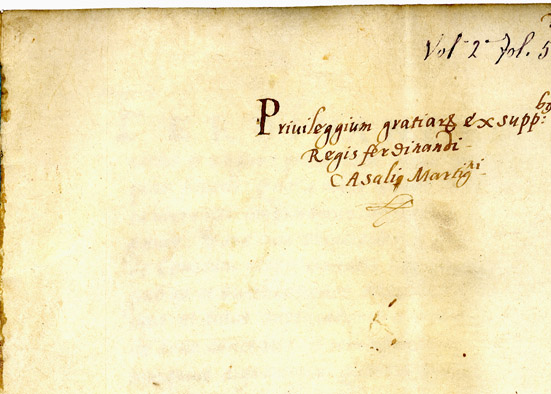 Vol. 2° fol. 5
Privileggium gratiarȝ ex supp:bȝ
Regis ferdinandi
Casalis Martigni